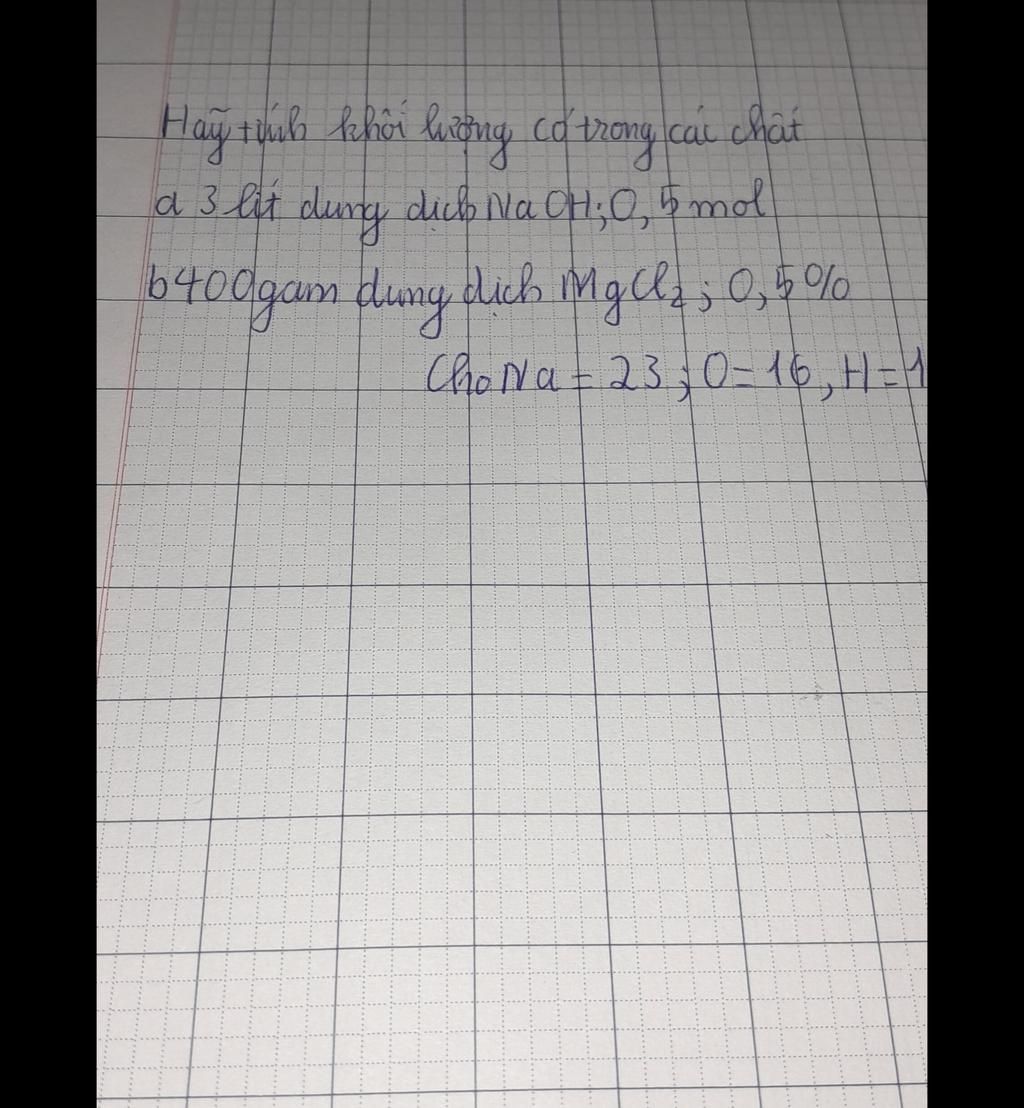 Haỹ tính khôí lượng có trong cać chất
a 3 lít dung dịch NaOH; 0,5 mol
b 400gam dung dịch MgCl₂; 0,5%
Cho Na = 23; O = 16, H = 1